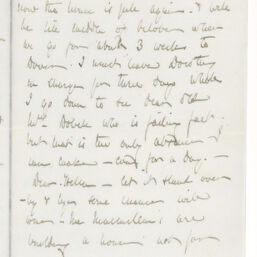 now the house is full again - & will
be till middle of October when
we go for about 3 weeks to
Devon. I must leave Dorothy
in charge for three days while
I go down to see dear old
Mrs. Dobell who is failing fast.
but that is the only absence I
can make - for a day. -
Dear - let it stand over
- by & bye some chance will
come - The Macmillans are
building a house not far